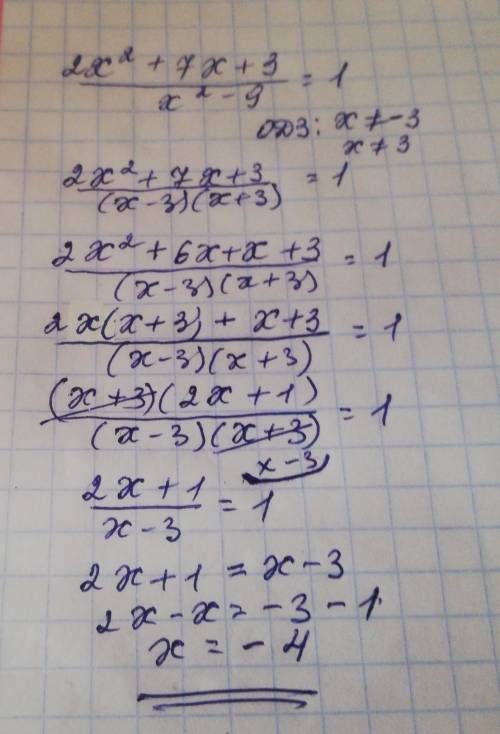 2x² + 7x + 3 / x² - 9 = 1
ОДЗ: x ≠ -3
x ≠ 3
2x² + 7x + 3 / (x-3)(x+3) = 1
2x² + 6x + x + 3 / (x-3)(x+3) = 1
2x(x+3) + x+3 / (x-3)(x+3) = 1
(x+3)(2x+1) / (x-3)(x+3) = 1
x-3
2x+1 / x-3 = 1
2x+1 = x-3
2x-x = -3-1
x = -4